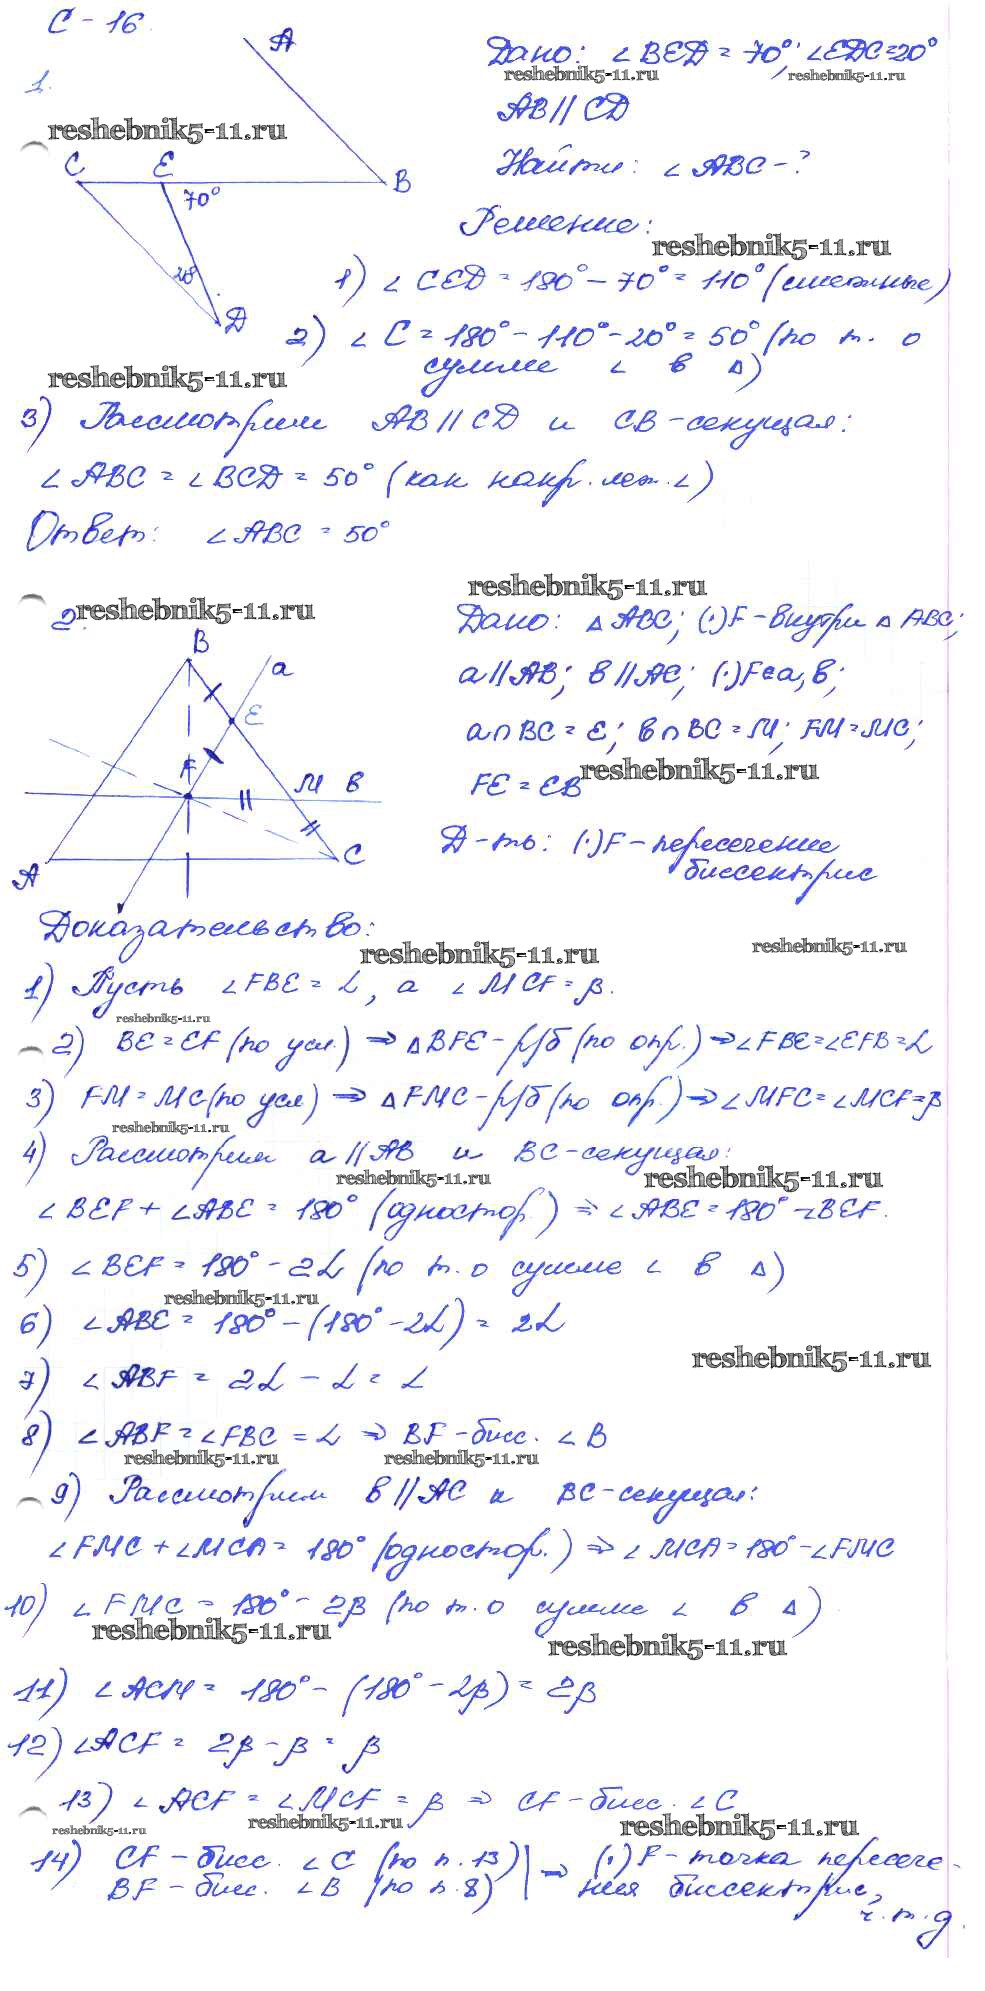 С-16.
A
1.
Дано: ∠BED = 70°; ∠EDC=20°
reshebnik5-11.ru
reshebnik5-11.ru
AB // CD
reshebnik5-11.ru
C E B
70°
Найти: ∠ABC-?
Решение:
reshebnik5-11.ru
20°
1) ∠CED = 180° - 70° = 110° (смежные)
D
2) ∠C = 180° - 110° - 20° = 50° (по т. о
сумме ∠ в Δ)
reshebnik5-11.ru
3) Рассмотрим AB // CD и CB-секущая:
∠ABC = ∠BCD = 50° (как накр. леж. ∠)
Ответ: ∠ABC = 50°
reshebnik5-11.ru
2.
reshebnik5-11.ru
Дано: Δ ABC; (·)F-внутри Δ ABC;
B
a
a // AB; b // AC; (·)F∈a, b;
E
a∩BC = E; b∩BC = M; FM = MC;
F
reshebnik5-11.ru
FE = EB
M b
Д-ть: (·)F-пересечение
биссектрис
A C
Доказательство:
reshebnik5-11.ru
reshebnik5-11.ru
1) Пусть ∠FBE = α, а ∠MCF = β.
reshebnik5-11.ru
2) BE = EF (по усл.) ⇒ Δ BFE-р/б (по опр.) ⇒ ∠FBE=∠EFB=α
3) FM = MC (по усл) ⇒ Δ FMC-р/б (по опр.) ⇒ ∠MFC = ∠MCF=β
reshebnik5-11.ru
4) Рассмотрим a // AB и BC-секущая:
reshebnik5-11.ru
reshebnik5-11.ru
∠BEF + ∠ABE = 180° (одностор.) ⇒ ∠ABE = 180° -∠BEF.
5) ∠BEF = 180° - 2α (по т. о сумме ∠ в Δ)
reshebnik5-11.ru
6) ∠ABE = 180° - (180° - 2α) = 2α
reshebnik5-11.ru
7) ∠ABF = 2α - α = α
8) ∠ABF = ∠FBC = α ⇒ BF-бисс. ∠B
reshebnik5-11.ru
reshebnik5-11.ru
9) Рассмотрим b // AC и BC-секущая:
∠FMC + ∠MCA = 180° (одностор.) ⇒ ∠MCA = 180° -∠FMC
10) ∠FMC = 180° - 2β (по т. о сумме ∠ в Δ)
reshebnik5-11.ru
reshebnik5-11.ru
11) ∠ACM = 180° - (180° - 2β) = 2β
12) ∠ACF = 2β - β = β
13) ∠ACF = ∠MCF = β ⇒ CF-бисс. ∠C
reshebnik5-11.ru
reshebnik5-11.ru
reshebnik5-11.ru
14) CF-бисс. ∠C (по п. 13) | ⇒ (·)F-точка пересече-
BF-бисс. ∠B (по п. 8) | ния биссектрис,
ч.т.д.